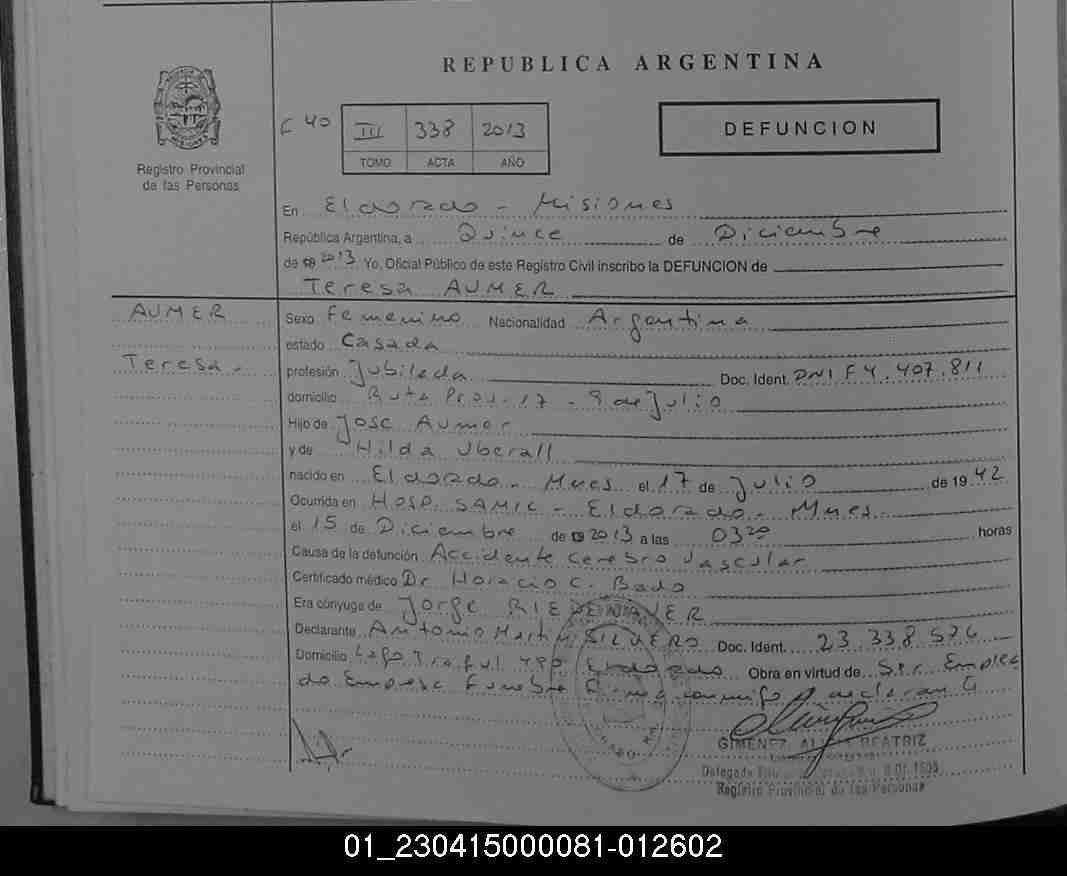 REPUBLICA ARGENTINA
Registro Provincial
de las Personas
F 40 III 338 2013
TOMO ACTA AÑO
DEFUNCION
En Eldorado - Misiones
República Argentina, a Quince de Diciembre
de 19 2013 Yo, Oficial Público de este Registro Civil inscribo la DEFUNCION de
Teresa AUMER
AUMER
Teresa.-
Sexo Femenino Nacionalidad Argentina
estado Casada
profesión Jubilada Doc. Ident. DNI F 4.407.811
domicilio Ruta Prov. 17 - 9 de Julio
Hijo de José Aumer
y de Hilda Uberall
nacido en Eldorado - Mnes el 17 de Julio de 19 42
Ocurrida en HOSP. SAMIC - Eldorado - Mnes
el 15 de Diciembre de 19 2013 a las 03 20 horas
Causa de la defunción Accidente Cerebro Vascular
Certificado médico Dr Horacio C. Bado
Era cónyuge de Jorge
Declarante Antonio Martin SILVERO Doc. Ident. 23.338.576
Domicilio Lago Traful 490 Eldorado Obra en virtud de Ser Emplea
do Empresa Funebre
GIMENEZ, BEATRIZ
Delegada
Registro Provincial de las Personas
01_230415000081-012602